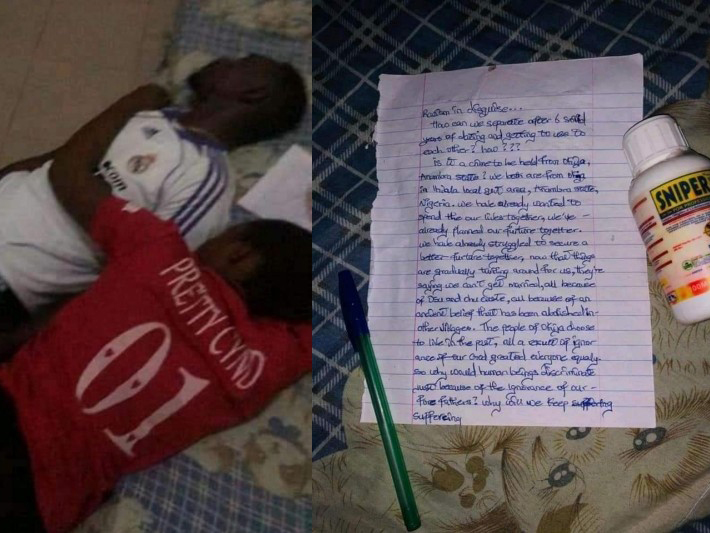 .kom
PRETTY CYND
01
Racism in disguise...
How can we separate after 6 solid
years of dating and getting to use to
each other? how???
Is it a crime to be held from Okija,
Anambra state? we both are from
in Ihiala local govt area, Anambra state,
Nigeria. we have already wanted to
spend the our lives together, we've -
already planned our furture together.
we have already struggled to secure a
better furture together, now that things
are gradually turning around for us, they're
saying we can't get married, all because
of Osu and chu caste, all because of an
ancient belief that has been abolished in-
other villages. The people of Okija choose
to live in the past, all a result of ignor
ance of our God greated everyone equaly.
so why would human beings discriminate
just because of the ignorance of our -
fore fathers? why will we keep
suffereing
SNIPER